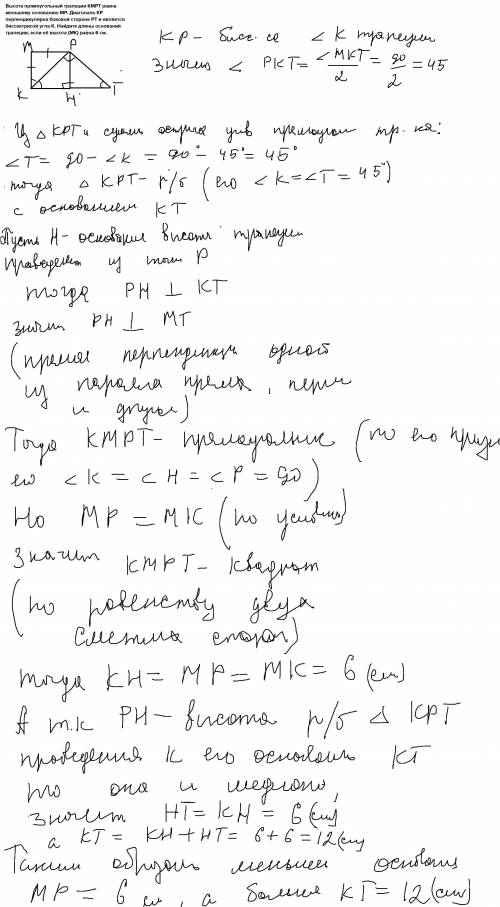 Высота прямоугольный трапеции КМРТ равна
меньшему основанию МР. Диагональ КР
перпендикулярна боковой стороне РТ и является
биссектрисой угла К. Найдите длины оснований
трапеции, если её высота (МК) равна 6 см.
M P
K H T
KP - бис. ∠ K трапеции
Значит ∠ PKT = ∠MKT/2 = 90/2 = 45
Из △ KPT и сумм острых прямоугол тр-ка:
∠T = 90 - ∠K = 90° - 45° = 45°
тогда △ KPT - р/б (его ∠K = ∠T = 45°)
с основанием KT
Пусть H - основание высоты трапеции
проведена из P
тогда PH ⊥ KT
значит PH ⊥ MT
(прямая одной
из прямых,
и другой)
Тогда KMPT - (по его
его ∠K = ∠H = ∠P = 90)
Но MP = MK (по условию)
Значит KMPT - квадрат
(по равенству двух
сторон)
тогда KH = MP = MK = 6 (см)
А т.к PH - высота р/б △ KPT
проведения к его KT
то она и медиана,
значит HT = KH = 6 (см)
а KT = KH + HT = 6 + 6 = 12 (см)
Таким образом меньшее
MP = 6 см, а KT = 12 (см)